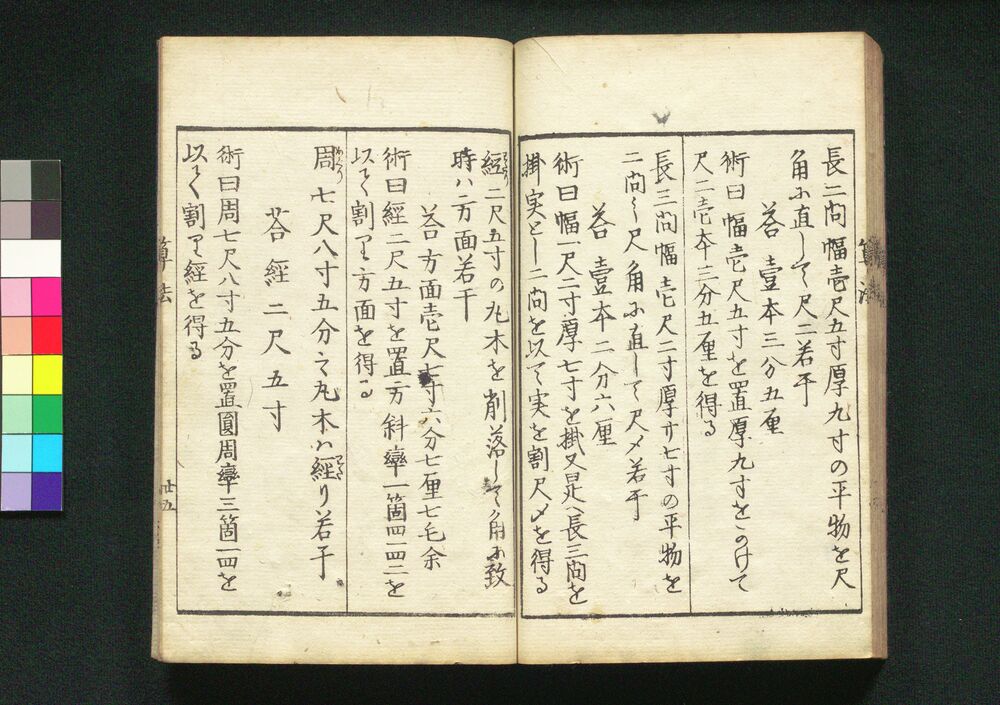 長二間幅壱尺五寸厚九寸の平物を尺
角に直して尺〆若干
答壹本三分五厘
術曰幅壱尺五寸を置厚九寸をかけて
尺〆壱本三分五厘を得る
長三間幅壱尺二寸厚サ七寸の平物を
二間の尺角に直して尺〆若干
答壹本二分六厘
術曰幅一尺二寸厚七寸を掛又是へ長三間を
掛実とし二間を以て実を割尺〆を得る
算法
経二尺五寸の丸木を削落して角に致
時ハ方面若干
答方面壱尺七寸六分七厘七毛余
術曰経二尺五寸を置方斜率一箇四一四二を
以て割り方面を得る
周七尺八寸五分之丸木ハ経り若干
答経二尺五寸
術曰周七尺八寸五分を置圓周率三箇一四を
以て割り経を得る
算法
廿五